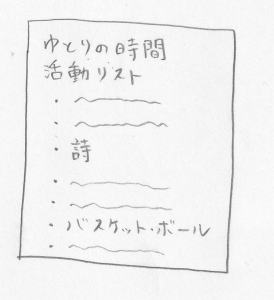 ゆとりの時間
活動リスト
・
・
・詩
・
・
・バスケット・ボール
・